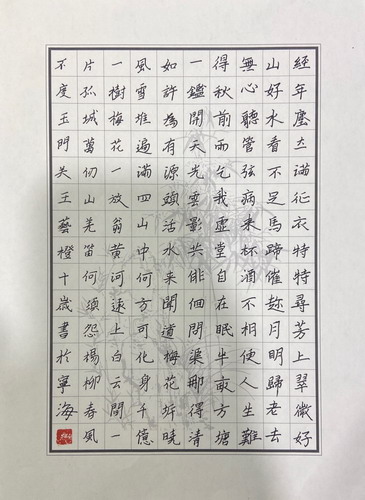 經年塵土滿征衣特特尋芳上翠微好
山好水看不足馬蹄催趁月明歸老去
無心聽管弦病来杯酒不相便人生難
得秋前雨乞我虛堂自在眠半畝方塘
一鑑開天光雲影共徘徊問渠那得清
如許為有源頭活水来聞道梅花坼曉
風雪堆遍滿四山中何方可化身千億
一樹梅花一放翁黄河遠上白云間一
片孤城萬仞山羌笛何須怨楊柳春風
不度玉門关王藝橙十歲書於寧海